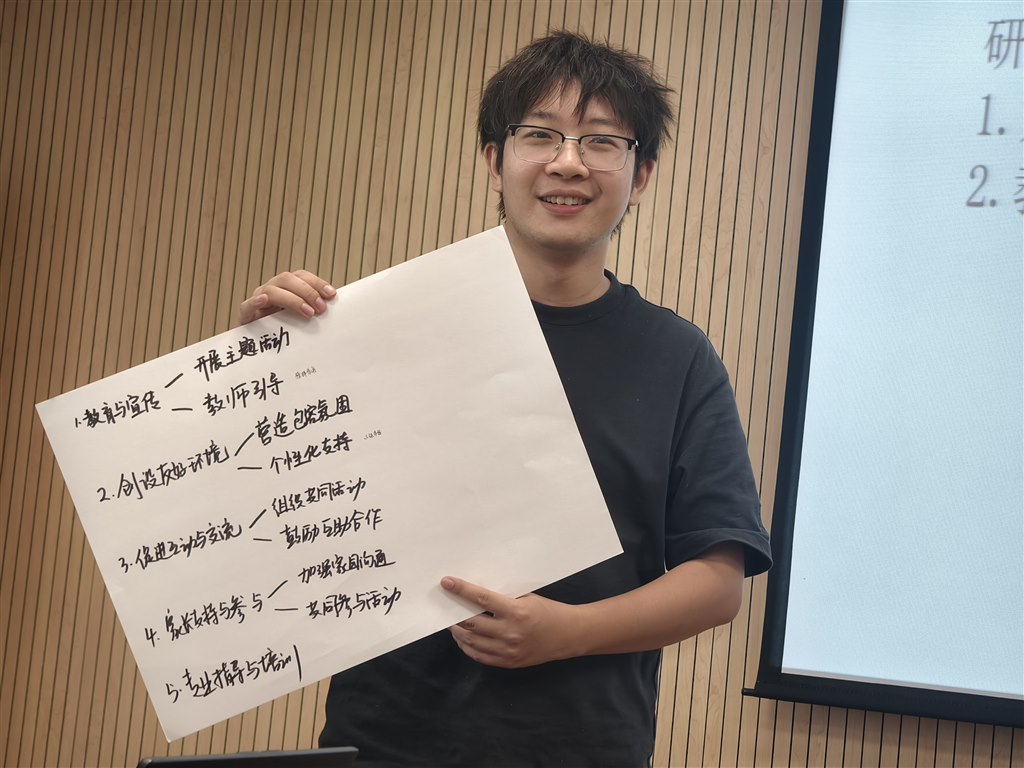 1. 教育与宣传
开展主题活动
教师引导
2. 创设友好环境
营造包容氛围
个性化支持
3. 促进互动与交流
组织共同活动
鼓励互助合作
4. 家长支持与参与
加强家园沟通
共同参与活动
5. 专业指导与培训
研
1.
2.